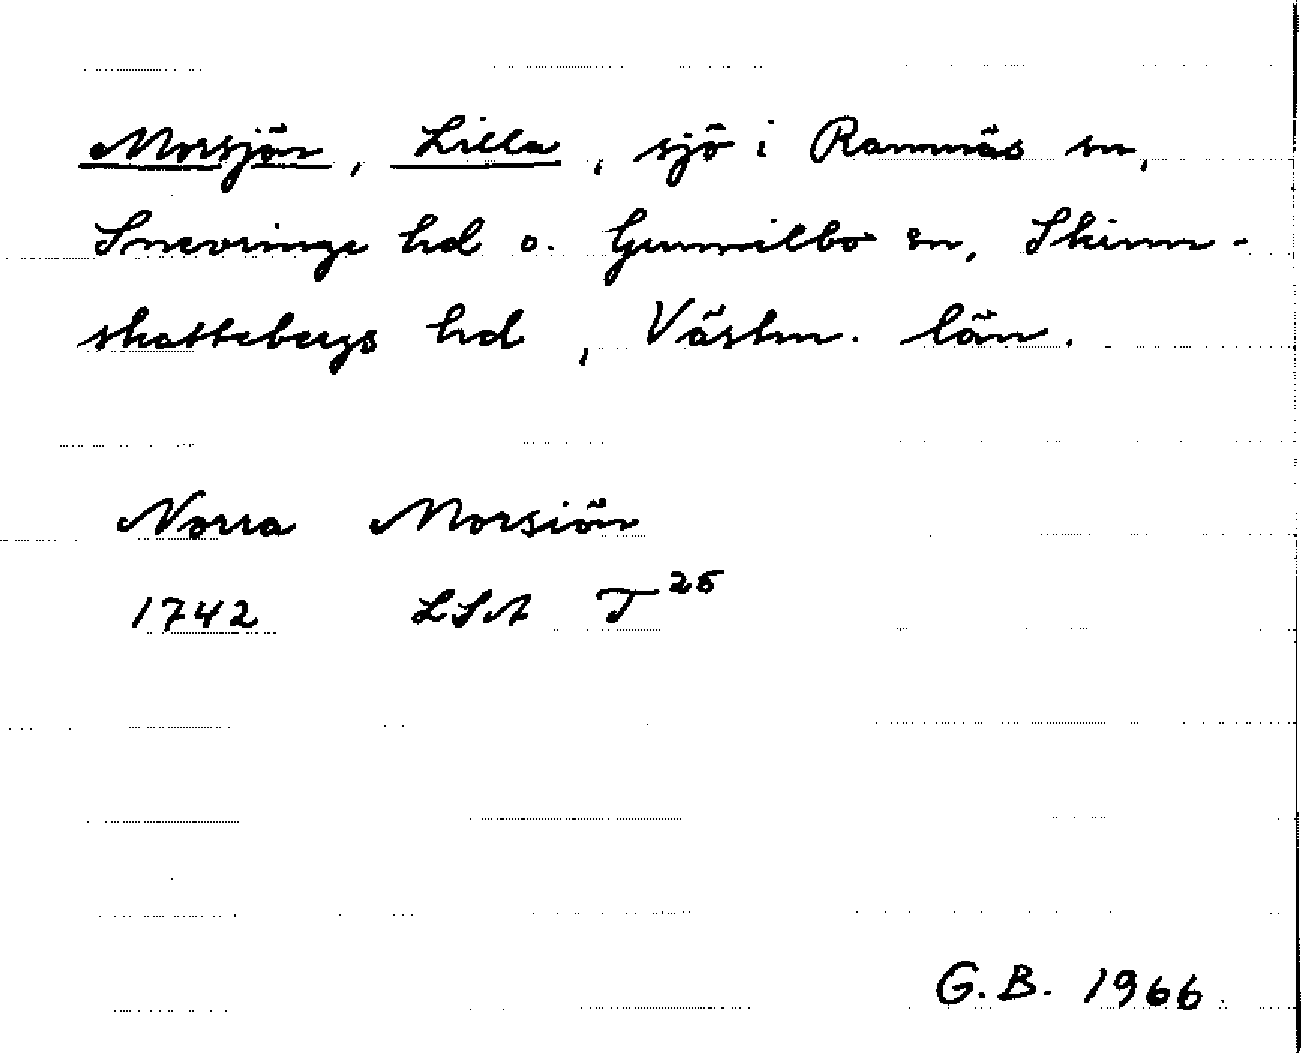 Morsjön, Lilla, sjö i Ramnäs sn,
Snevringe hd o. Gunnilbo sn, Skinn-
skattebergs hd, Västm. län.
Norra Morsiön
1742 LSA T25
G.B. 1966